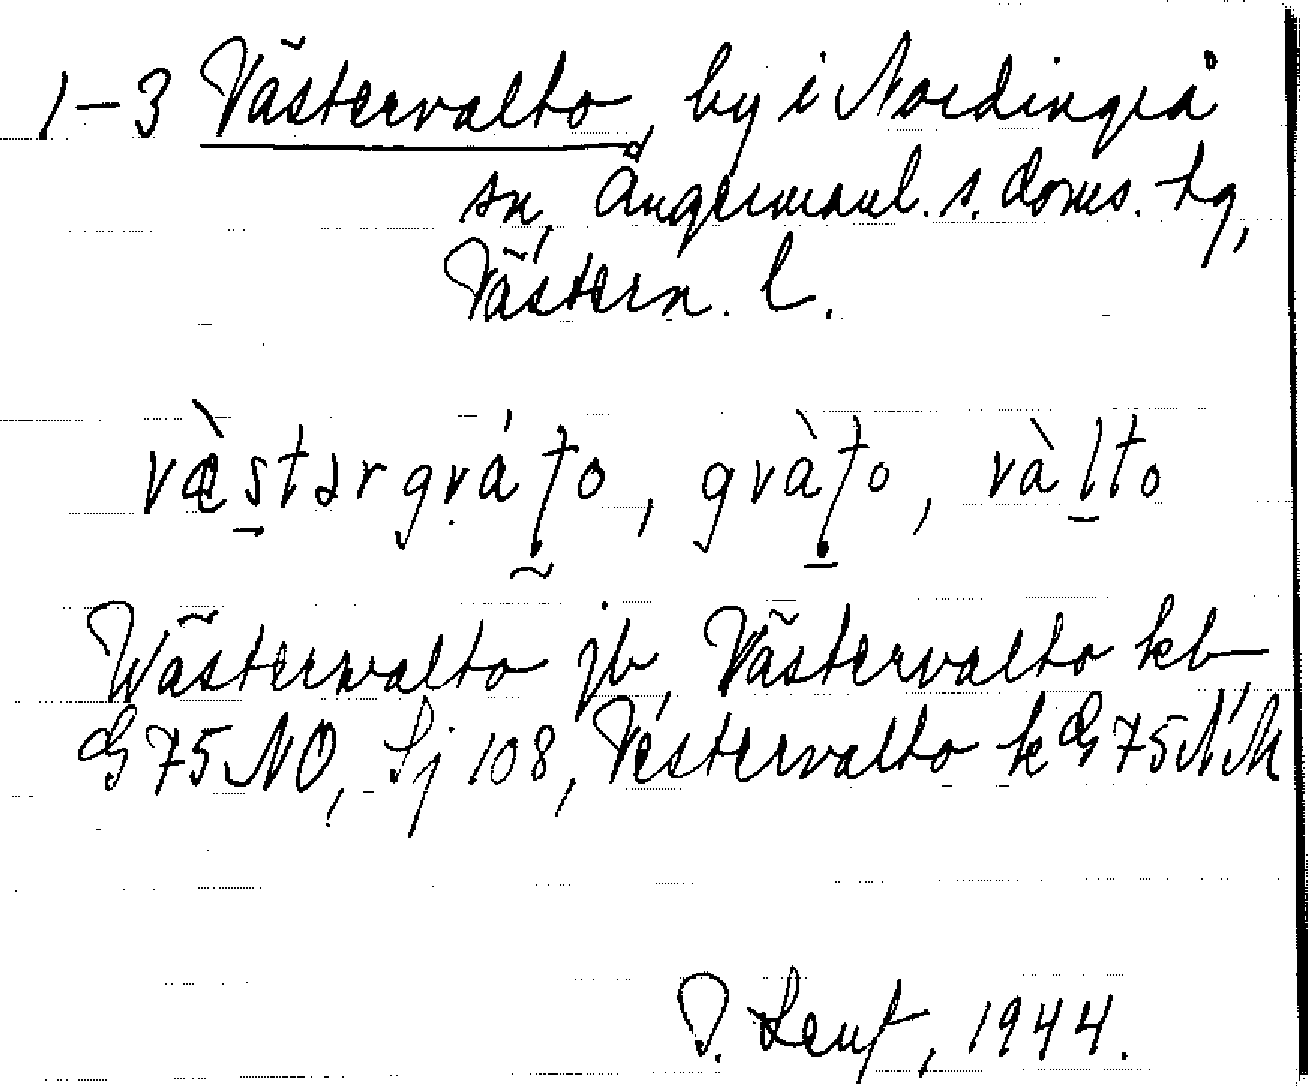 1-3 Västervalto, by i Nordingrå
sn, Ångermanl. s. doms. tg,
Västern. l.
gvàʈo, vàlto
Wästervalto jb, Västervalto kb
G 75 NO, Sj 108, Vestervalto k G 75 NM
1944.